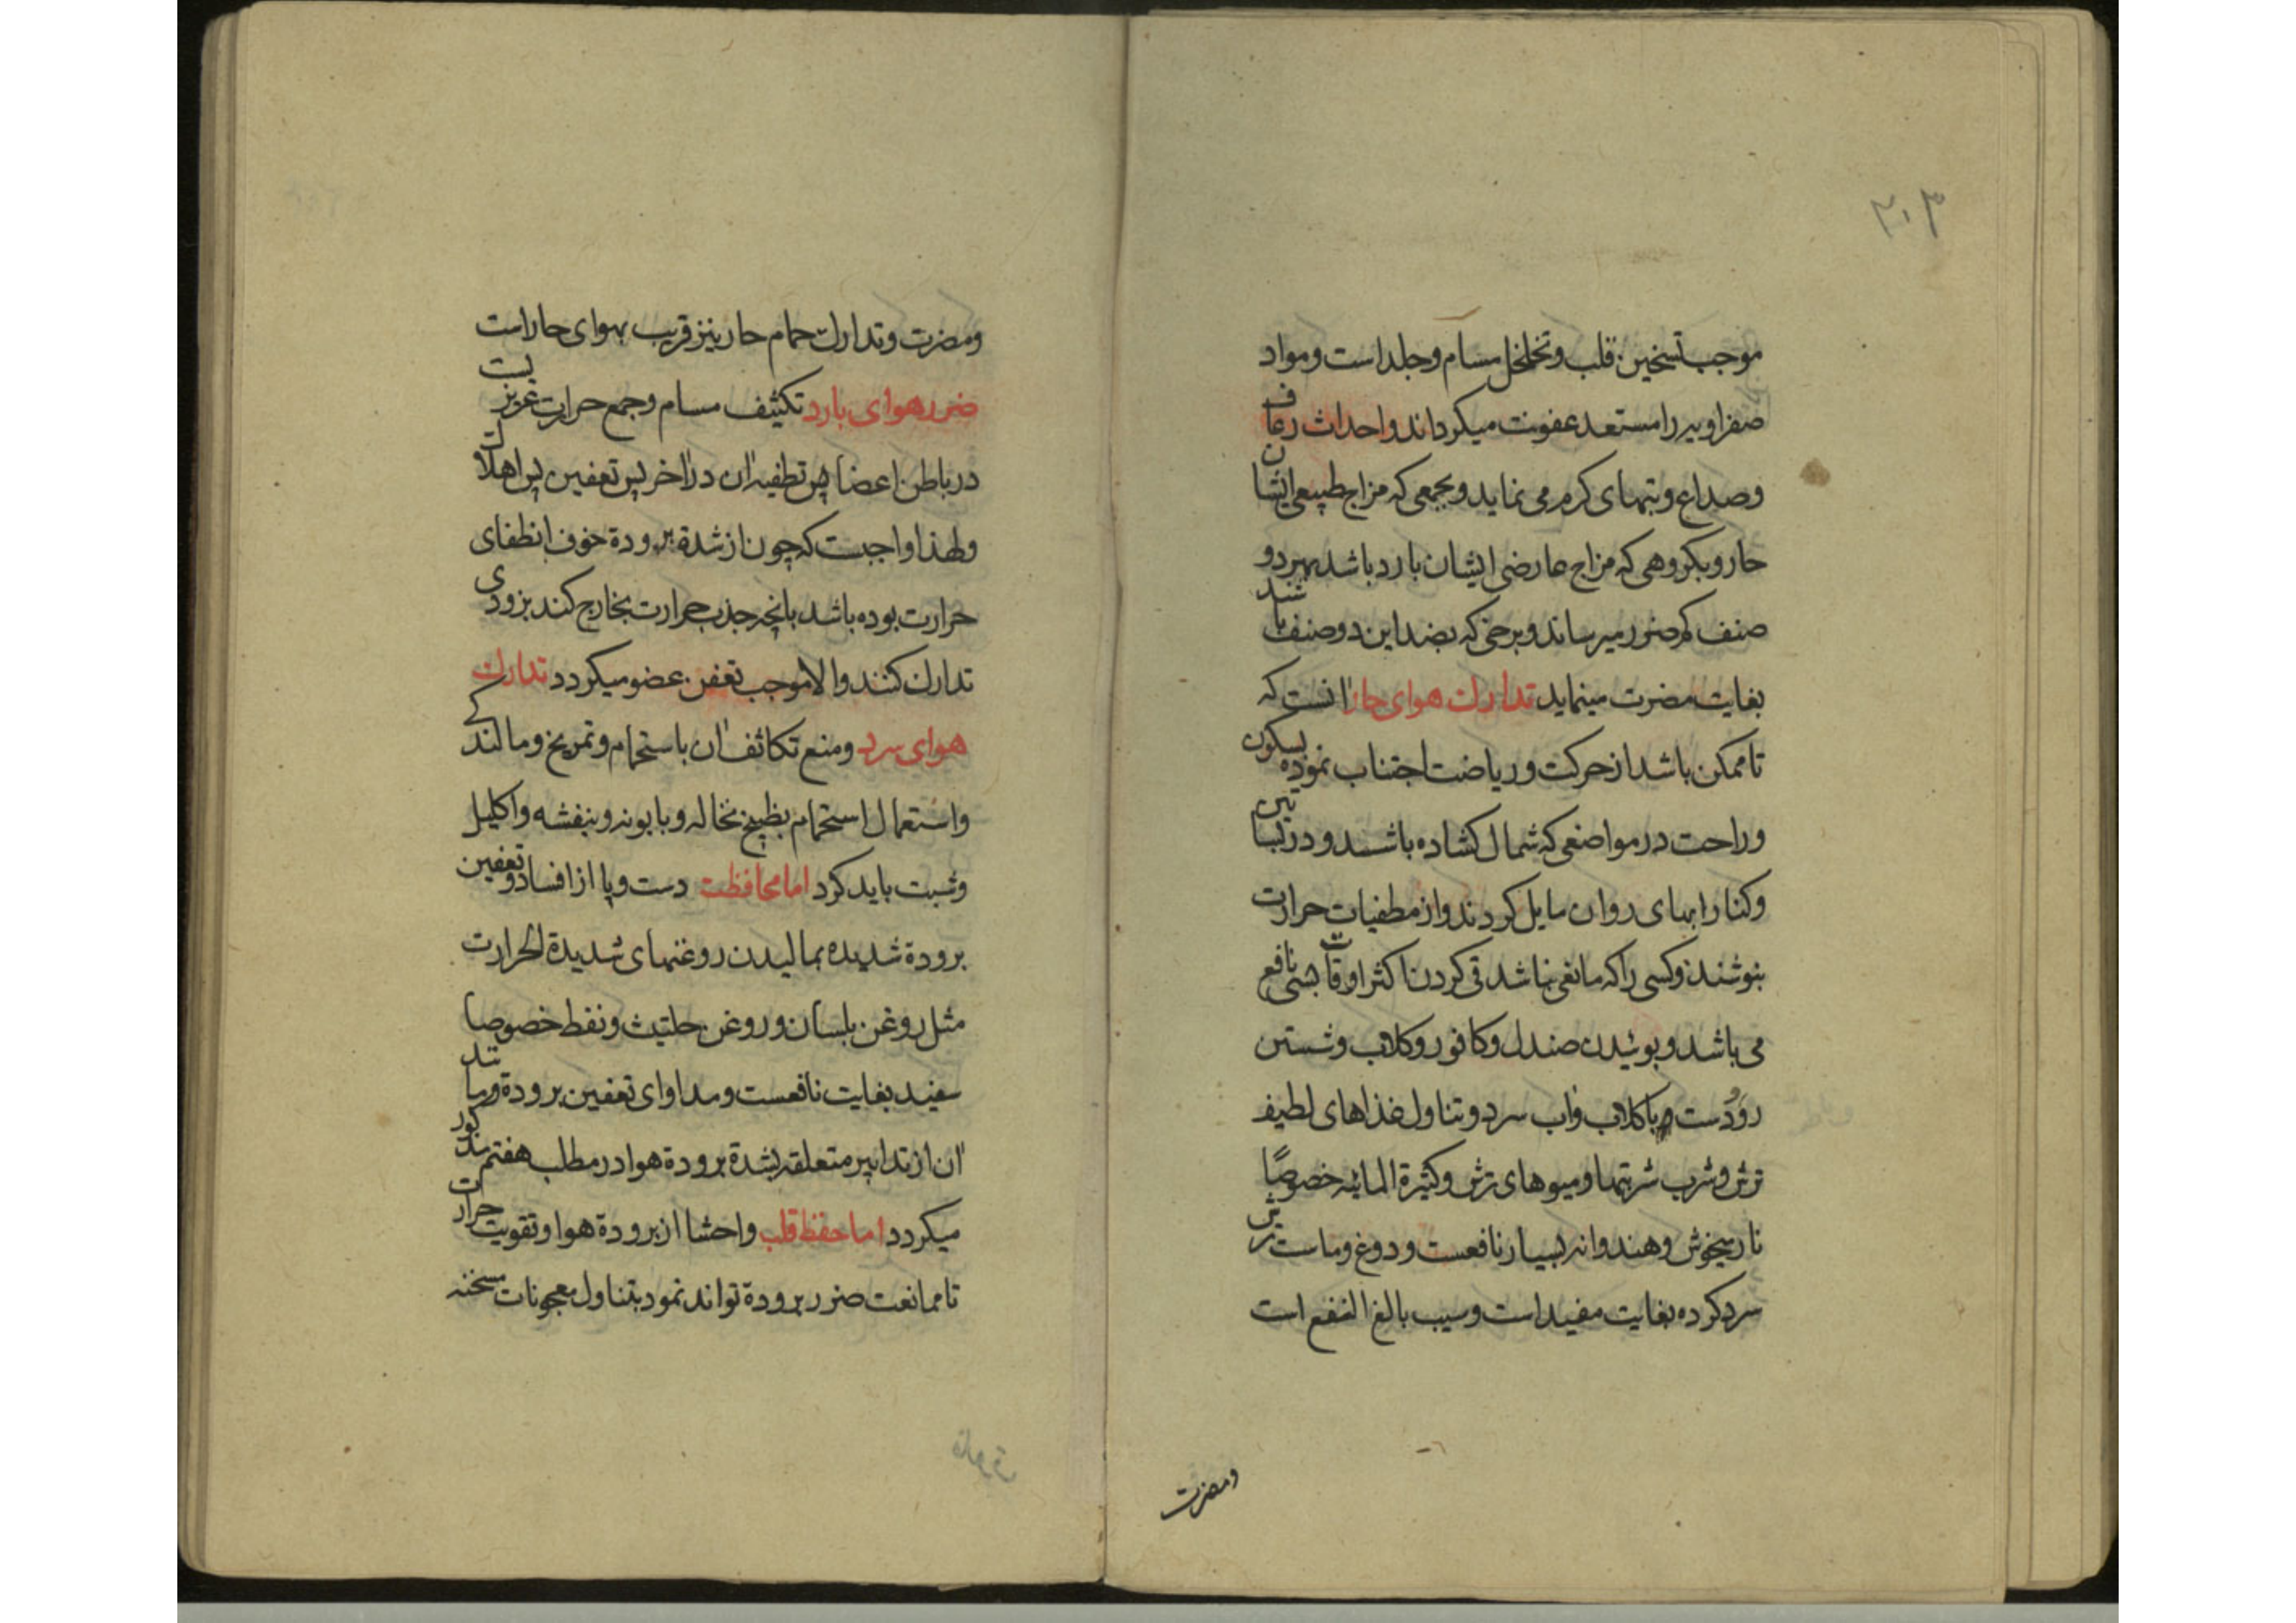 ۳۰۳
موجب تسخین قلب و تخلخل مسام و جلد است و مواد
صفراویه را مستعد عفونت میکرداند و احداث رعاف
و صداع و تبهای کرم می نماید و بجمعی که مزاج طبیعی ایشان
حار و بکروهی که مزاج عارضی ایشان بارد باشد بهردو
صنف که ضرر میرساند و برخی که بضد این دو صنف باشند
بغایت مضرت مینماید تدارك هوای حار آنست که
تا ممکن باشد از حرکت و ریاضت اجتناب نموده بسکون
و راحت در مواضعی که شمال کشاده باشد و در بساتین
و کنار ابهای روان مایل کردند و از مطفیات حرارت
بنوشند و کسی را که مانعی نباشد قی کردن اکثر اوقات بسی نافع
می باشد و بوئیدن صندل و کافور و کلاب و شستن
رو و دست با کلاب و اب سرد و تناول غذاهای لطیف
ترش و شرب شربتها و میوهای ترش و کثیرة المائیه خصوصًا
نار میخوش و هندوانه بسیار نافعست و دوغ و ماست ترش
سرد کرده بغایت مفید است و سیب بالغ النفع است
و مضرت
و مضرت و تدارك حمام حار نیز قریب بهوای حار است
ضرر هوای بارد تکثیف مسام و جمع حرارت غریزیست
در باطن اعضا پس تطفیه آن در آخر پس تعفین پس اهلاك
و لهذا واجبست که چون از شدة برودة خوف انطفای
حرارت بوده باشد بانچه جذب حرارت بخارج کند بزودی
تدارك کنند و الا موجب تعفن عضو میکردد تدارك
هوای سرد و منع تکاثف آن باستحمام و تمریخ و مالندکی
و استعمال استحمام بطبیخ نخاله و بابونه و بنفشه و اکلیل
و شبت باید کرد اما محافظت دست و پا از افساد و تعفین
برودة شدیده بمالیدن روغنهای شدیدة الحرارت
مثل روغن بلسان و روغن حلتیث و نفط خصوصا
سفید بغایت نافعست و مداوای تعفین برودة و مانند
آن از تدابیر متعلقه بشدة برودة هوا در مطلب هفتم مذکور
میکردد اما حفظ قلب و احشا از برودة هوا و تقویت حرارت
تا ممانعت ضرر برودة تواند نمود بتناول معجونات مسخنه